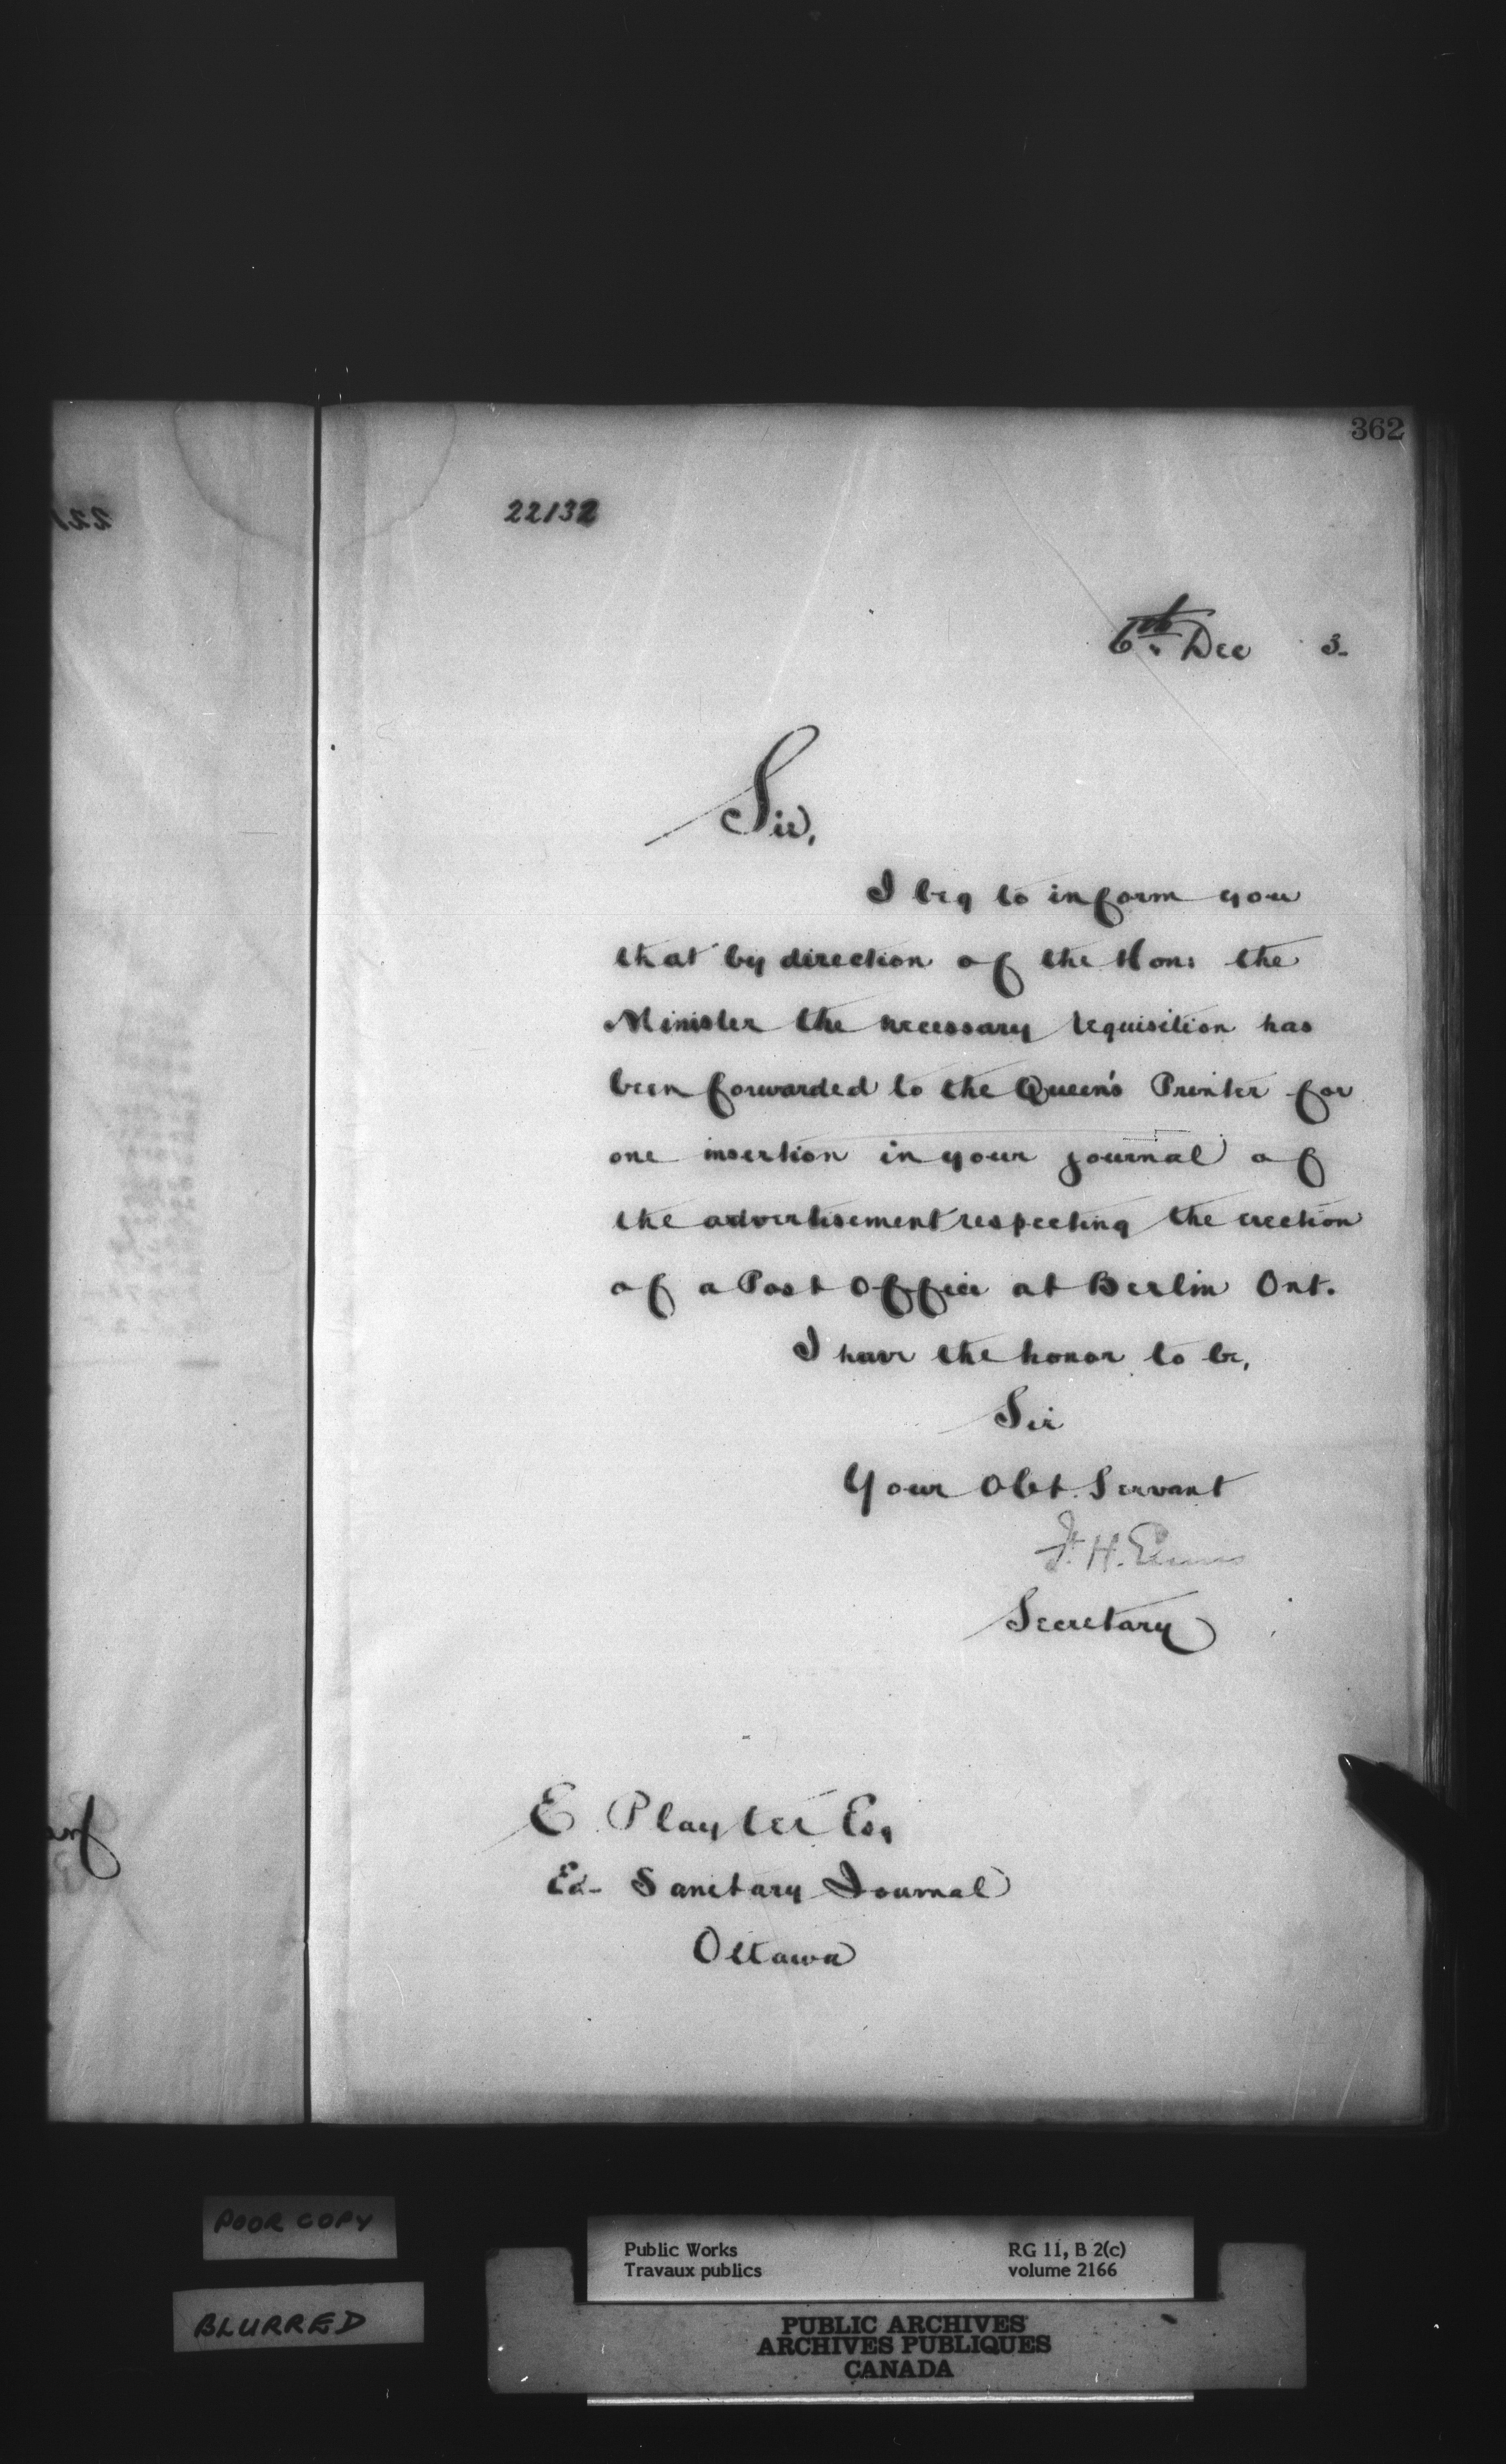 362
22132
6th. Dec 3.
Sir,
I beg to inform you
that by direction of the Hon: the
Minister the necessary requisition has
been forwarded to the Queen's Printer for
one insertion in your journal of
the advertisement respecting the erection
of a Post Office at Berlin Ont.
I have the honor to be,
Sir
Your Obt. Servant
F. H. Ennis
Secretary
E. Playter Esq
Ed- Sanitary Journal
Ottawa
POOR COPY
BLURRED
Public Works
Travaux publics
RG 11, B 2(c)
volume 2166
PUBLIC ARCHIVES
ARCHIVES PUBLIQUES
CANADA